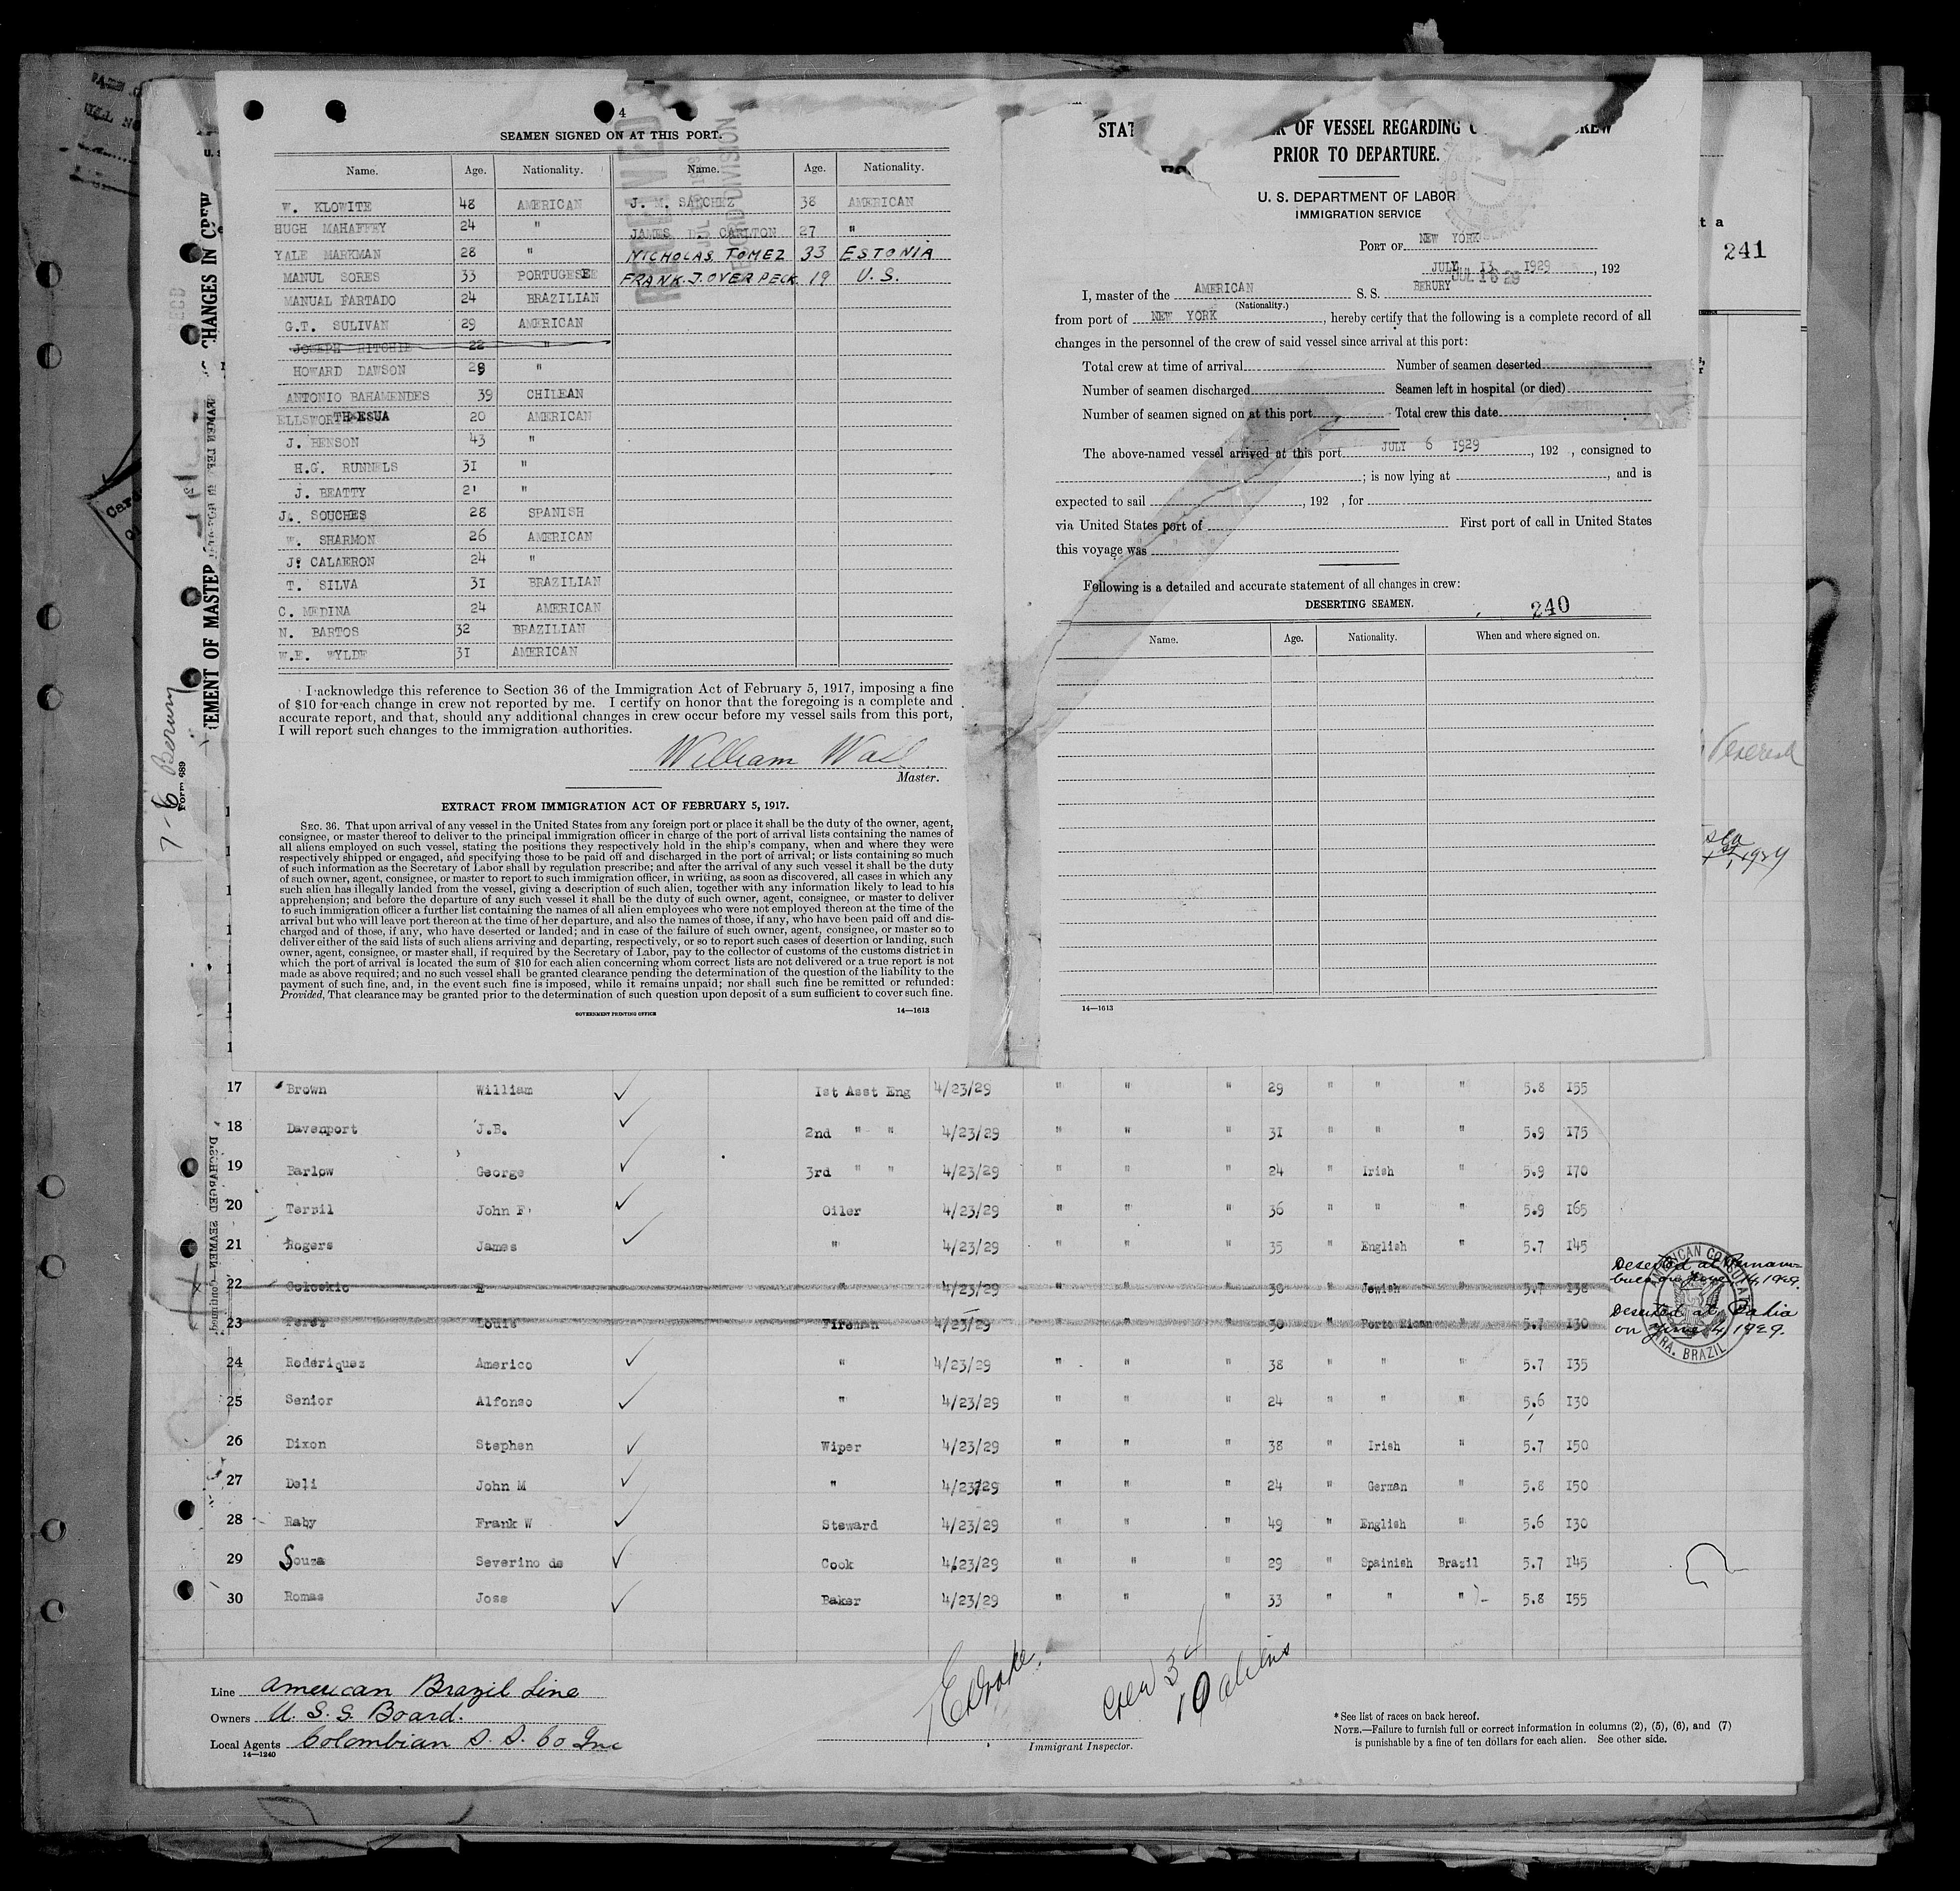 4
SEAMEN SIGNED ON AT THIS PORT.
Name. Age. Nationality. Name. Age. Nationality.
W. KLOWITE 48 AMERICAN J. N. SANCHEZ 38 AMERICAN
HUGH MAHAFFEY 24 " JAMES D. CARLTON 27 "
YALE MARKMAN 28 " NICHOLAS TOMEZ 33 ESTONIA
MANUL SORES 33 PORTUGESE FRANK J. OVERPECK 19 U.S.
MANUAL FARTADO 24 BRAZILIAN
G.T. SULIVAN 29 AMERICAN
JOSEPH RITCHIE 22 "
HOWARD DAWSON 28 "
ANTONIO BAHAMENDES 39 CHILEAN
ELLSWORTH ESUA 20 AMERICAN
J. BENSON 43 "
H.G. RUNNELS 31 "
J. BEATTY 21 "
J. SOUCHES 28 SPANISH
W. SHARMON 26 AMERICAN
J. CALAERON 24 "
T. SILVA 31 BRAZILIAN
C. MEDINA 24 AMERICAN
N. BARTOS 32 BRAZILIAN
W.E. WYLDE 31 AMERICAN
I acknowledge this reference to Section 36 of the Immigration Act of February 5, 1917, imposing a fine
of $10 for each change in crew not reported by me. I certify on honor that the foregoing is a complete and
accurate report, and that, should any additional changes in crew occur before my vessel sails from this port,
I will report such changes to the immigration authorities.
William Wall
Master.
EXTRACT FROM IMMIGRATION ACT OF FEBRUARY 5, 1917.
SEC. 36. That upon arrival of any vessel in the United States from any foreign port or place it shall be the duty of the owner, agent,
consignee, or master thereof to deliver to the principal immigration officer in charge of the port of arrival lists containing the names of
all aliens employed on such vessel, stating the positions they respectively hold in the ship's company, when and where they were
respectively shipped or engaged, and specifying those to be paid off and discharged in the port of arrival; or lists containing so much
of such information as the Secretary of Labor shall by regulation prescribe; and after the arrival of any such vessel it shall be the duty
of such owner, agent, consignee, or master to report to such immigration officer, in writing, as soon as discovered, all cases in which any
such alien has illegally landed from the vessel, giving a description of such alien, together with any information likely to lead to his
apprehension; and before the departure of any such vessel it shall be the duty of such owner, agent, consignee, or master to deliver
to such immigration officer a further list containing the names of all alien employees who were not employed thereon at the time of the
arrival but who will leave port thereon at the time of her departure, and also the names of those, if any, who have been paid off and dis-
charged and of those, if any, who have deserted or landed; and in case of the failure of such owner, agent, consignee, or master so to
deliver either of the said lists of such aliens arriving and departing, respectively, or so to report such cases of desertion or landing, such
owner, agent, consignee, or master shall, if required by the Secretary of Labor, pay to the collector of customs of the customs district in
which the port of arrival is located the sum of $10 for each alien concerning whom correct lists are not delivered or a true report is not
made as above required; and no such vessel shall be granted clearance pending the determination of the question of the liability to the
payment of such fine, and, in the event such fine is imposed, while it remains unpaid; nor shall such fine be remitted or refunded:
Provided, That clearance may be granted prior to the determination of such question upon deposit of a sum sufficient to cover such fine.
GOVERNMENT PRINTING OFFICE 14—1613
OF VESSEL REGARDING
PRIOR TO DEPARTURE.
U. S. DEPARTMENT OF LABOR
IMMIGRATION SERVICE
PORT OF NEW YORK
JULY 13 1929, 192
JUL 16 29
I, master of the AMERICAN S. S. BERURY
(Nationality.)
from port of NEW YORK, hereby certify that the following is a complete record of all
changes in the personnel of the crew of said vessel since arrival at this port:
Total crew at time of arrival Number of seamen deserted
Number of seamen discharged Seamen left in hospital (or died)
Number of seamen signed on at this port Total crew this date
The above-named vessel arrived at this port JULY 6 1929, 192 , consigned to
; is now lying at , and is
expected to sail , 192 , for
via United States port of First port of call in United States
this voyage was
Following is a detailed and accurate statement of all changes in crew:
DESERTING SEAMEN.
240
Name. Age. Nationality. When and where signed on.
14—1613
241
7-6 Berury
Form 689
CHANGES IN CREW
17 Brown William 1st Asst Eng 4/23/29 " " " 29 " " " 5.8 155
18 Davenport J.B. 2nd " " 4/23/29 " " " 31 " " " 5.9 175
19 Barlow George 3rd " " 4/23/29 " " " 24 " Irish " 5.9 170
20 Terzil John F. Oiler 4/23/29 " " " 36 " " " 5.9 165
21 Rogers James " 4/23/29 " " " 35 " English " 5.7 145
22 Coloskie E " 4/23/29 " " " 38 " Jewish " 5.7 138 Deserted at Pernam-
buco on June 14, 1929.
23 Perez Louis Fireman 4/23/29 " " " 30 " Porto Rican " 5.7 130 Deserted at Bahia
on June 4, 1929.
24 Roderiquez Americo " 4/23/29 " " " 38 " " " 5.7 135
25 Senior Alfonso " 4/23/29 " " " 24 " " " 5.6 130
26 Dixon Stephen Wiper 4/23/29 " " " 38 " Irish " 5.7 150
27 Deli John M " 4/23/29 " " " 24 " German " 5.8 150
28 Raby Frank W Steward 4/23/29 " " " 49 " English " 5.6 130
29 Souza Severino de Cook 4/23/29 " " " 29 " Spainish Brazil 5.7 145
30 Romas Jose Baker 4/23/29 " " " 33 " " " 5.8 155
Line American Brazil Line
Owners U. S. S. Board.
Local Agents Colombian S. S. Co Inc
14—1240
Crew 34
10 aliens
Immigrant Inspector.
* See list of races on back hereof.
NOTE.—Failure to furnish full or correct information in columns (2), (5), (6), and (7)
is punishable by a fine of ten dollars for each alien. See other side.